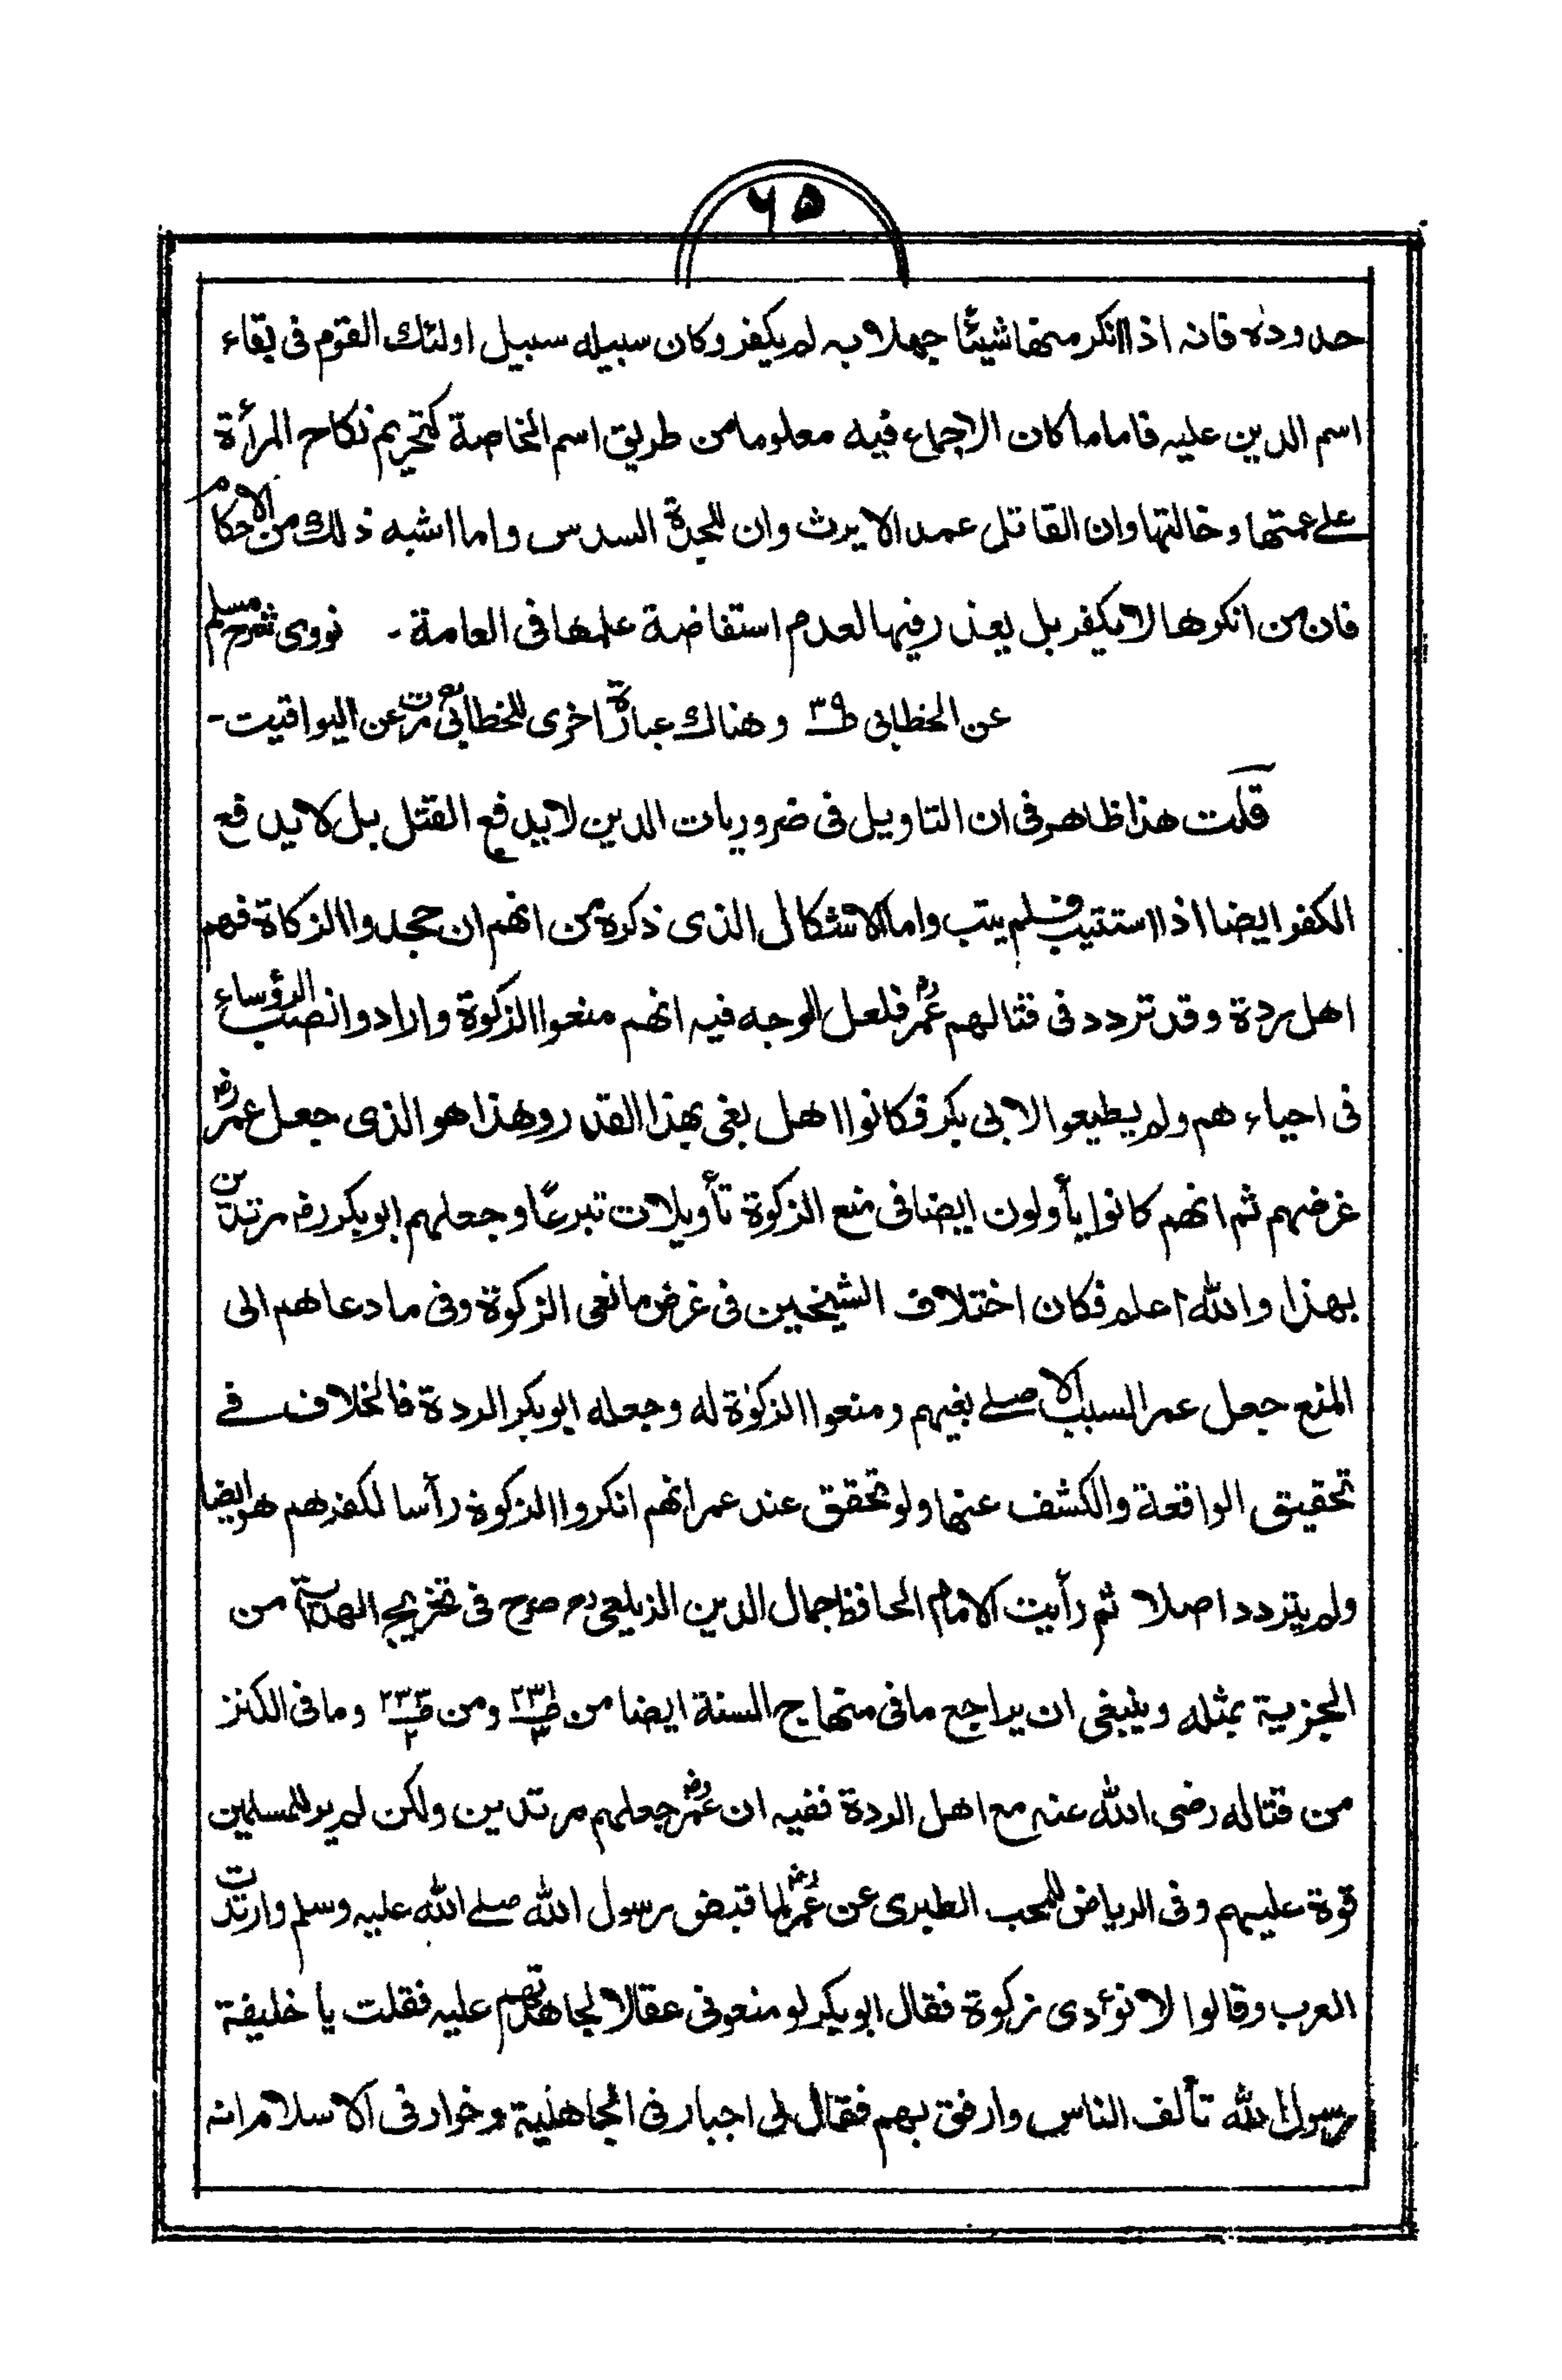 ۶۵
حدوده فانه اذا انكر منها شيئًا جهلا به لم يكفر وكان سبيله سبيل اولئك القوم فى بقاء
اسم الدين عليه فاما ما كان الاجماع فيه معلوما من طريق اسم الخاصة كتحريم نكاح المرأة
على عمتها وخالتها وان القاتل عمدا لا يرث وان للجدة السدس واما اشبه ذلك من الاحكام
فان من انكرها لا يكفر بل يعذر فيها لعدم استفاضة علمها فى العامة - نووى شرح مسلم
عن الخطابى ص۳۹ وهناك عبارة اخرى للخطابى مرت عن اليواقيت -
قلت هذا ظاهر فى ان التاويل فى ضروريات الدين لا يدفع القتل بل لا يدفع
الكفر ايضا اذا استتيب فلم يتب واما الاشكال الذى ذكره من انهم ان جحدوا الزكاة فهم
اهل ردة وقد تردد فى قتالهم عمرؓ فلعل الوجه فيه انهم منعوا الزكوة وارادوا نصب الرؤساء
فى احياءهم ولم يطيعوا لابى بكر فكانوا اهل بغى بهذا القدر وهذا هو الذى جعل عمرؓ
غرضهم ثم انهم كانوا يأولون ايضا فى منع الزكوة تأويلات تبرعًا وجعلهم ابو بكر رضـ مرتدين
بهذا والله اعلم فكان اختلاف الشيخين فى غرض مانعى الزكوة وفى ما دعاهم الى
المنع جعل عمر السبب الاصلے بغيهم ومنعوا الزكوٰة له وجعله ابو بكر الردة فالخلاف فے
تحقيق الواقعة والكشف عنها ولو تحقق عند عمر انهم انكروا الزكوة رأسا لكفرهم هو ايضا
ولم يتردد اصلا ثم رأيت الامام الحافظ جمال الدين الزيلعى رح صرح فى تخريج الهداية من
الجزية بمثله وينبغى ان يراجع ما فى منهاج السنة ايضا من ومن وما فى الكنز
من قتاله رضى الله عنه مع اهل الردة ففيه ان عمرؓ جعلهم مرتدين ولكن لم ير للمسلمين
قوة عليهم وفى الرياض للمحب الطبرى عن عمرؓ لما قبض رسول الله صلے الله عليه وسلم وارتدت
العرب وقالوا لا نؤدى زكوة فقال ابو بكر لو منعونى عقالا لجاهدتهم عليه فقلت يا خليفة
رسول الله تألف الناس وارفق بهم فقال لى اجبار فى الجاهلية وخوار فى الاسلام انه